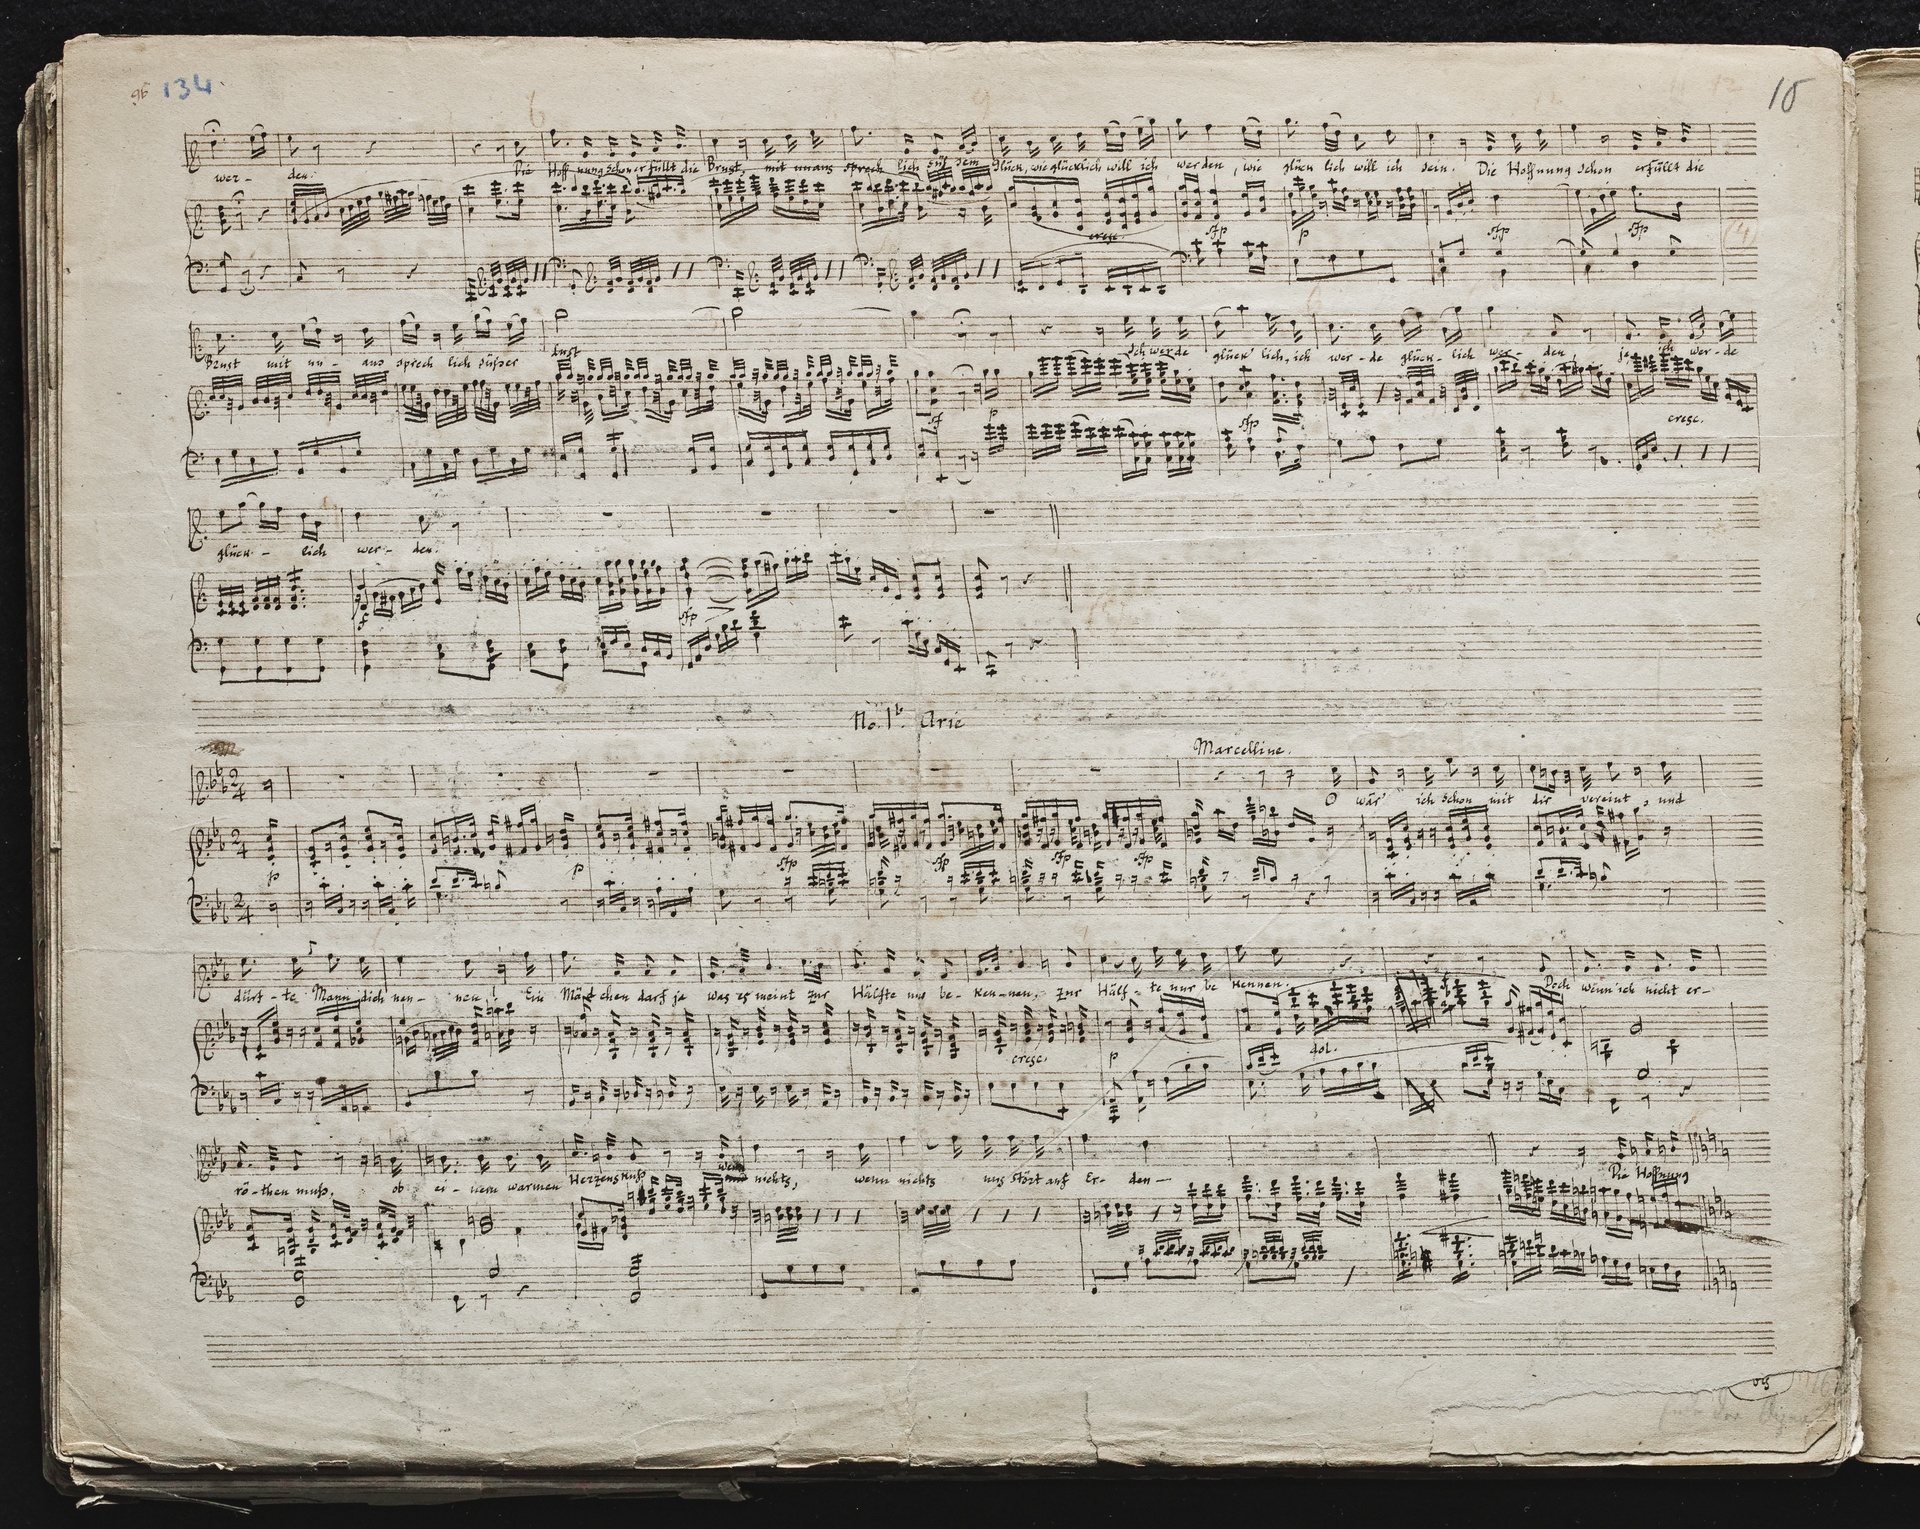 96 134. 10
wer - den. Die Hoffnung schon erfüllt die Brust, mit unaussprechlich süssem Glück, wie glücklich will ich werden, wie glücklich will ich sein. Die Hoffnung schon erfüllt die
cresc. sfp p sfp sfp
Brust mit un - aussprechlich süsser Lust Ich werde glück'lich, ich wer-de glück-lich wer- den, ja ich wer-de
sf p sfp cresc.
glück - lich wer - den.
f sfp
No. 1b. Arie
Marcelline.
O wär' ich schon mit dir vereint, und
p p sfp sfp sfp sfp
dürf-te Mann dich nen-nen! Ein Mädchen darf ja was es meint zur Hälfte nur be-ken-nen, zur Hälf-te nur be kennen. Doch wenn ich nicht er-
cresc. p dol.
rö-then muß, ob ei-nem warmen Herzenskuß wenn nichts, wenn nichts uns stört auf Er-den— Die Hoffnung